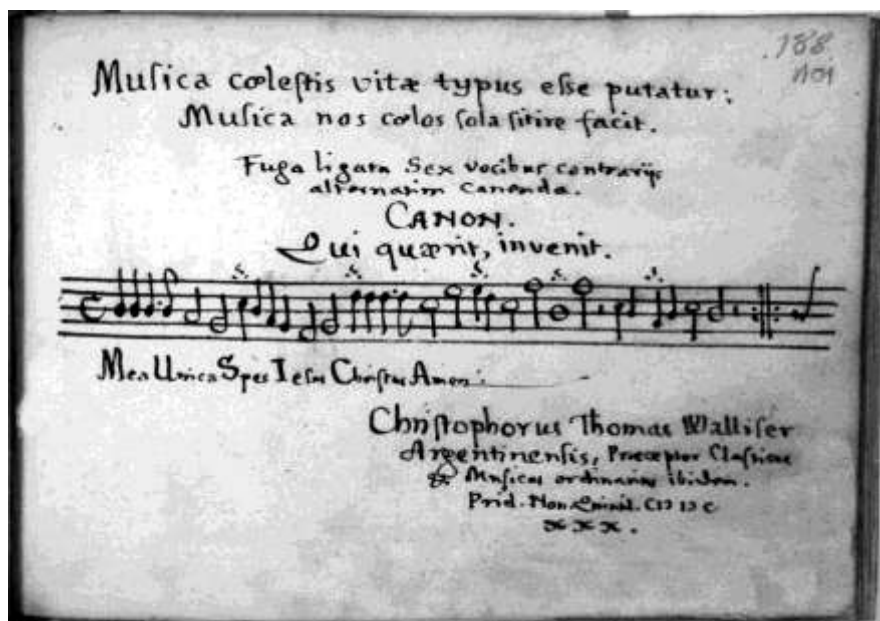 188
101
Musica cœlestis vitæ typus esse putatur:
Musica nos cœlos sola sitire facit.
Fuga ligata Sex vocibus contrarijs
alternatim Canenda.
CANON.
Qui quærit, invenit.
Mea Unica Spes Iesus Christus Amen.
Christophorus Thomas Walliser
Argentinensis, Præceptor Classicus
& Musicus ordinarius ibidem.
Prid. Non.